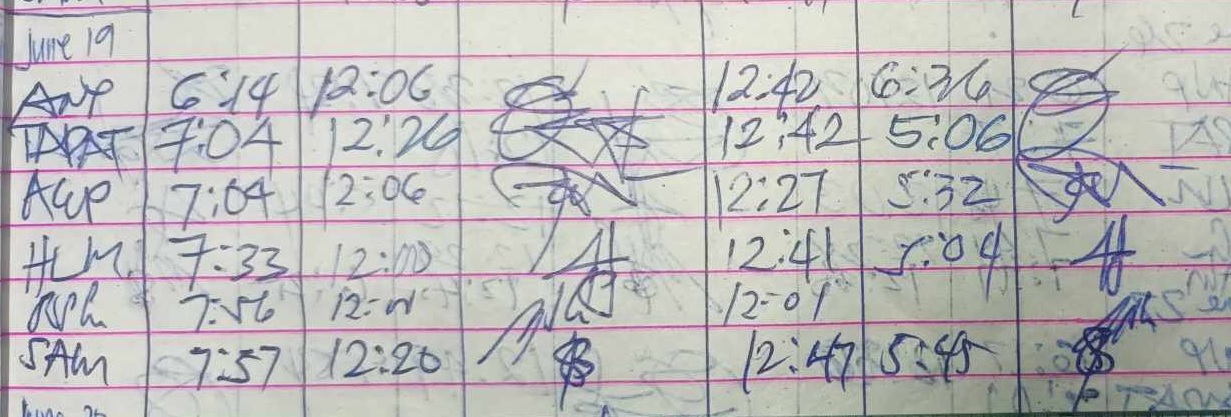 June 19
ANP 6:14 12:06 12:42 6:36
TAPAT 7:04 12:26 12:42 5:06
AGP 7:04 12:06 12:27 5:32
HLM 7:33 12:00 12:41 5:04
7:56 12:01 12:01
SAM 7:57 12:20 12:47 5:45